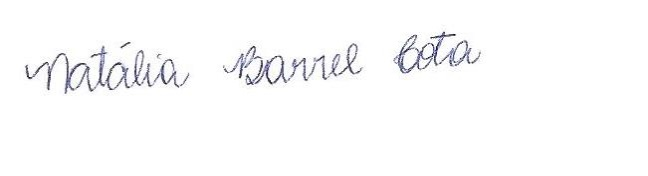 Natália Barrel Cota